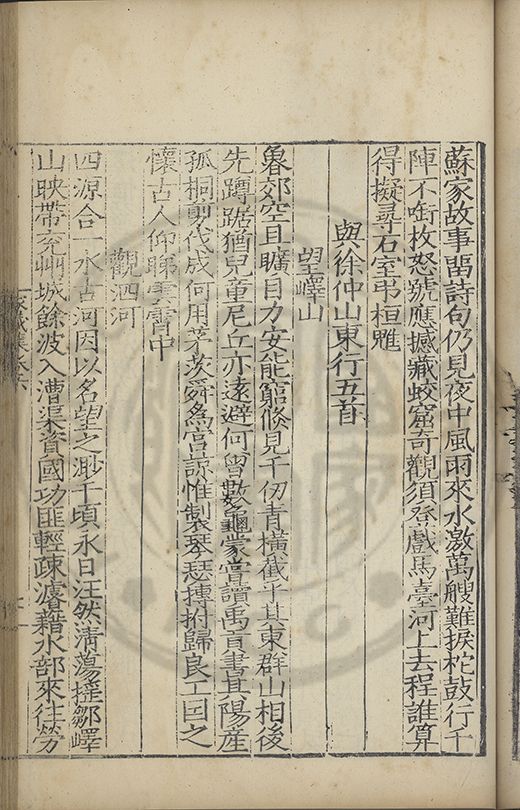 蘇家故事畱詩句仍見夜中風雨來水激萬艘難捩柁鼓行千
陣不銜枚怒號應撼藏蛟窟奇觀須登戲馬臺河上去程誰算
得擬尋石室弔桓魋
與徐仲山東行五首
望嶧山
魯郊空且曠目力安能窮倏見千仞青橫截乎其東群山相後
先蹲踞猶兒童尼丘亦遠避何曾數龜蒙嘗讀禹貢書其陽產
孤桐剪伐成何用茅茨舜爲宮諒惟製琴瑟摶拊歸良工因之
懷古人仰睇雲霄中
觀泗河
四源合一水古河因以名望之渺千頃永日汪然清蕩摇鄒嶧
山映帶兖州城餘波入漕渠資國功匪輕疎濬藉水部來往勞
家藏集卷六